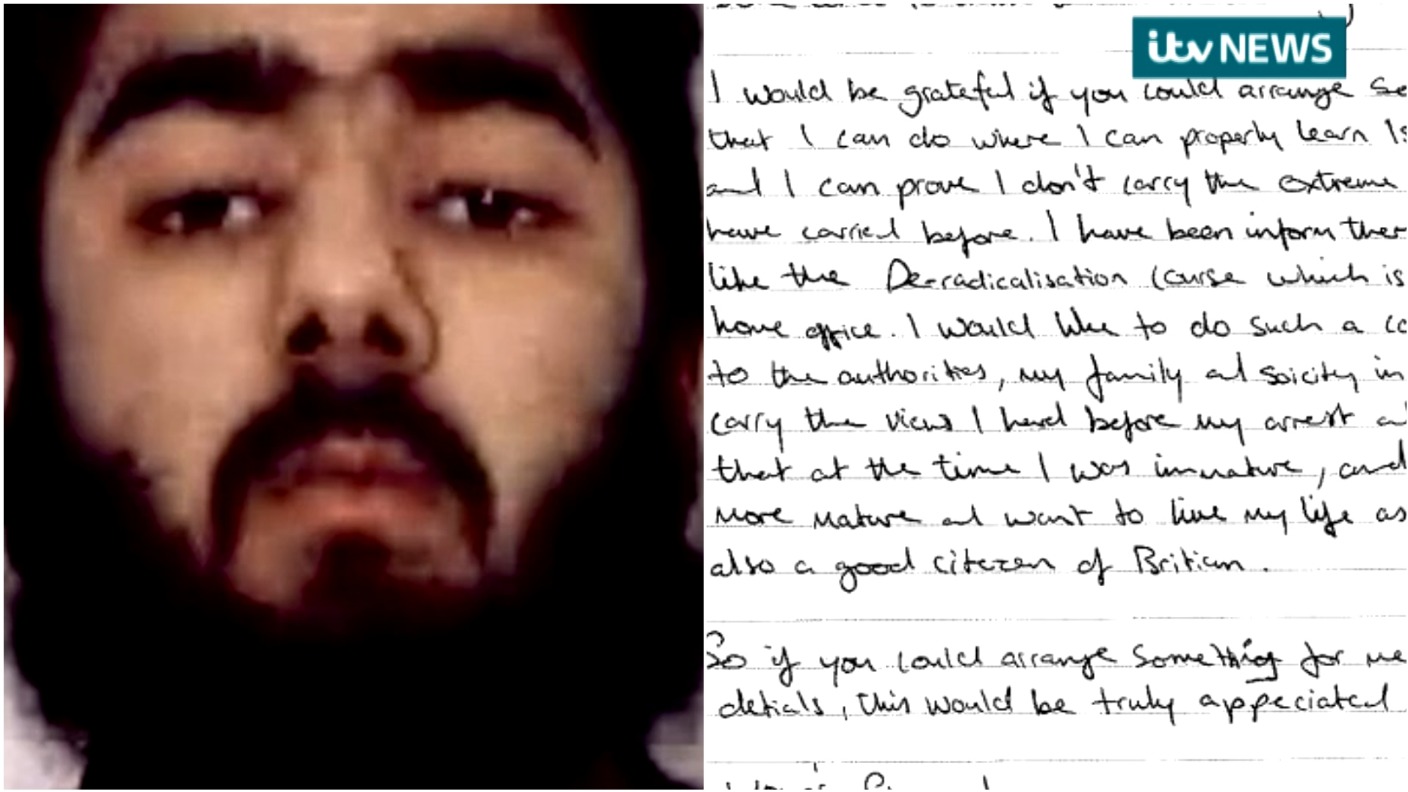 itv NEWS
I would be grateful if you could arrange so
that I can do where I can properly learn Is
and I can prove I don't carry the extreme
have carried before. I have been inform ther
like the De-radicalisation course which is
home office. I would like to do such a co
to the authorities, my family and soicity in
carry the views I had before my arrest a
that at the time I was immature, and
more mature and want to live my life as
also a good citezen of Britian.
So if you could arrange something for me
detials, this would be truly appeciated